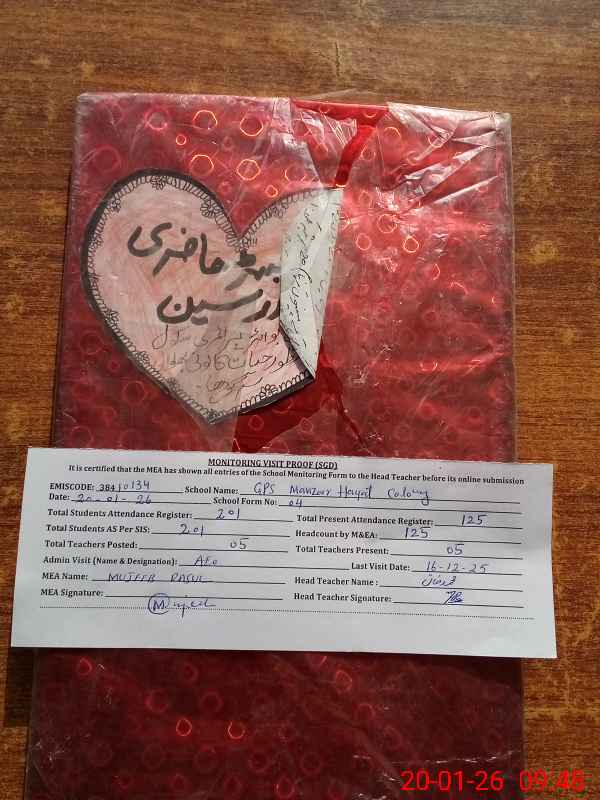 رجسٹر حاضری
مدرسین
گورنمنٹ بوائز پرائمری سکول
منظور حیات کالونی
سرگودھا
MONITORING VISIT PROOF (SGD)
It is certified that the MEA has shown all entries of the School Monitoring Form to the Head Teacher before its online submission
EMISCODE: 38410134 School Name: GPS Manzoor Hayat Colony
Date: 20-01-26 School Form No: 04
Total Students Attendance Register: 201 Total Present Attendance Register: 125
Total Students AS Per SIS: 201 Headcount by M&EA: 125
Total Teachers Posted: 05 Total Teachers Present: 05
Admin Visit (Name & Designation): AEO Last Visit Date: 16-12-25
MEA Name: MUJEEB RASUL Head Teacher Name:
MEA Signature: Mujeeb Head Teacher Signature:
20-01-26 09:48